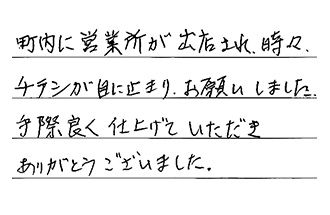 町内に営業所が出店され、時々、
チラシが目に止まり、お願いしました。
手際良く仕上げていただき
ありがとうございました。